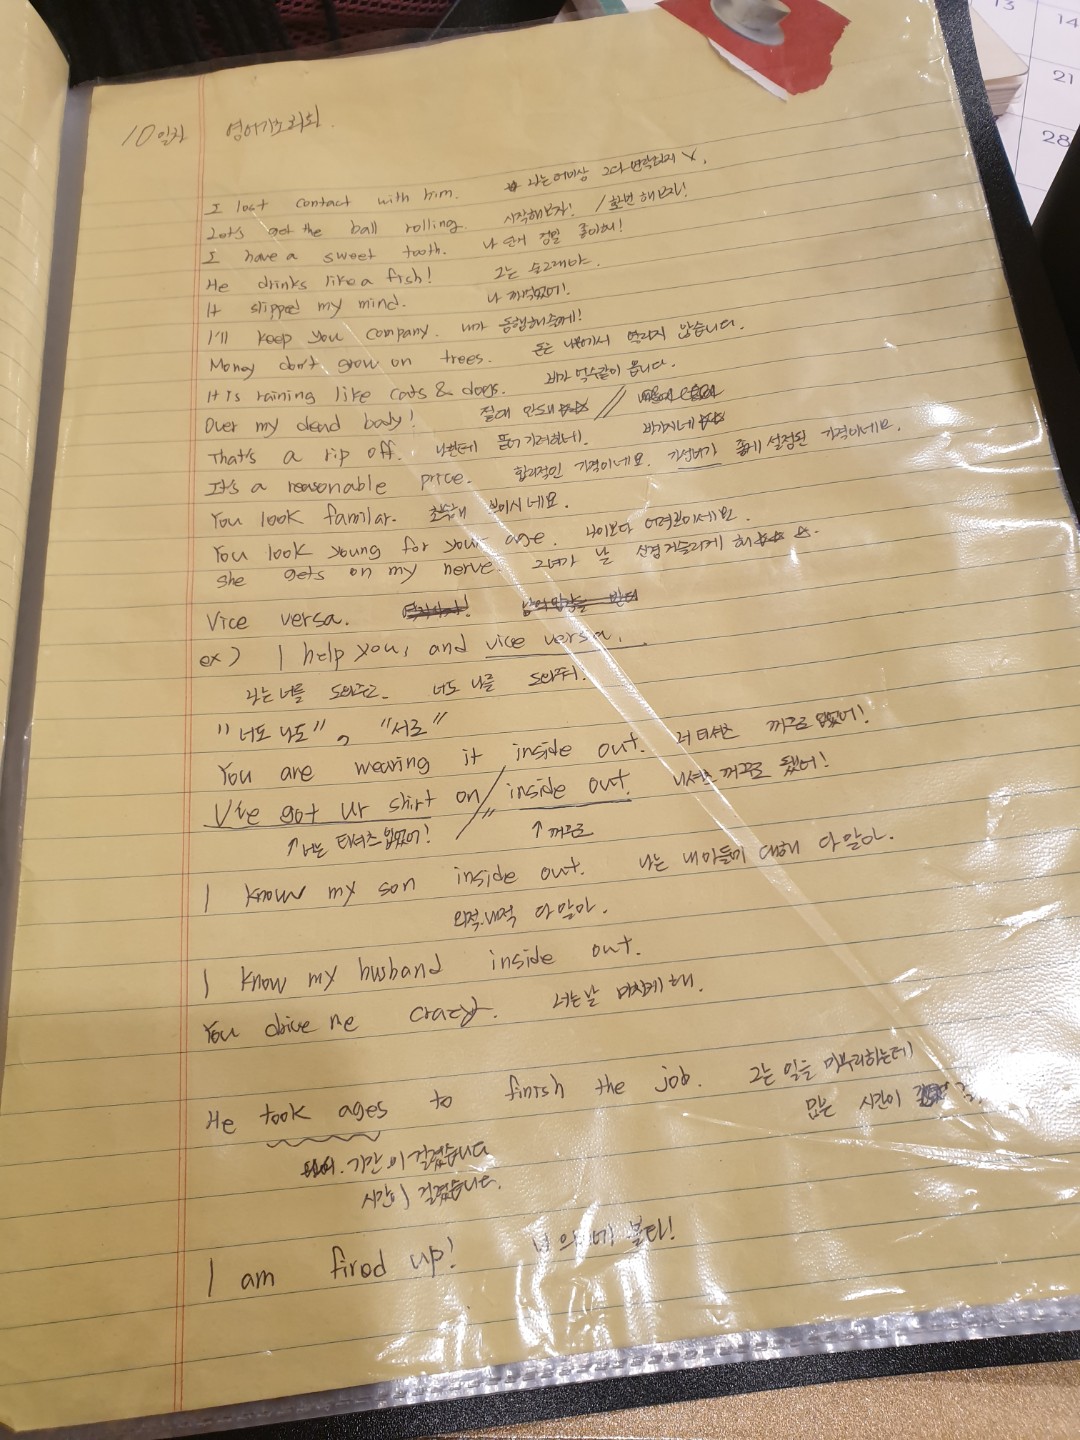 13
14
21
28
10일차 영어기초회화
I lost contact with him. 나는 더이상 그와 연락되지 X.
Let's get the ball rolling. 시작해보자! / 한번 해보자!
I have a sweet tooth. 나 단거 정말 좋아해!
He drinks like a fish! 그는 술고래야.
It slipped my mind. 나 까먹었어!
I'll keep you company. 내가 동행해줄게!
Money don't grow on trees. 돈은 나무에서 열리지 않습니다.
It is raining like cats & dogs. 비가 억수같이 옵니다.
Over my dead body! 절대 안돼 //
That's a rip off. 나한테 바가지네
It's a reasonable price. 합리적인 가격이네요. 좋게 설정된 가격이네요.
You look familar. 친숙해 보이시네요.
You look young for your age. 나이보다 어려보이세요.
She gets on my nerve. 그녀가 날 신경거슬리게 해
Vice versa.
ex) I help you, and vice versa.
나는 너를 도와주고. 너도 나를 도와줘!
"너도 나도", "서로"
You are wearing it inside out. 너 티셔츠 꺼꾸로 입었어!
U've got ur shirt on / inside out. 니셔츠 꺼꾸로 됐어!
↑ 너는 티셔츠 입었어! ↑ 꺼꾸로
I know my son inside out. 나는 내 아들에 대해 다 알아.
외적.내적 다 알아.
I know my husband inside out.
You drive me crazy. 너는 날 미치게 해.
He took ages to finish the job. 그는 일을 마무리하는데
많은 시간이
기간이 걸렸습니다
시간이 걸렸습니다.
I am fired up! 불타!